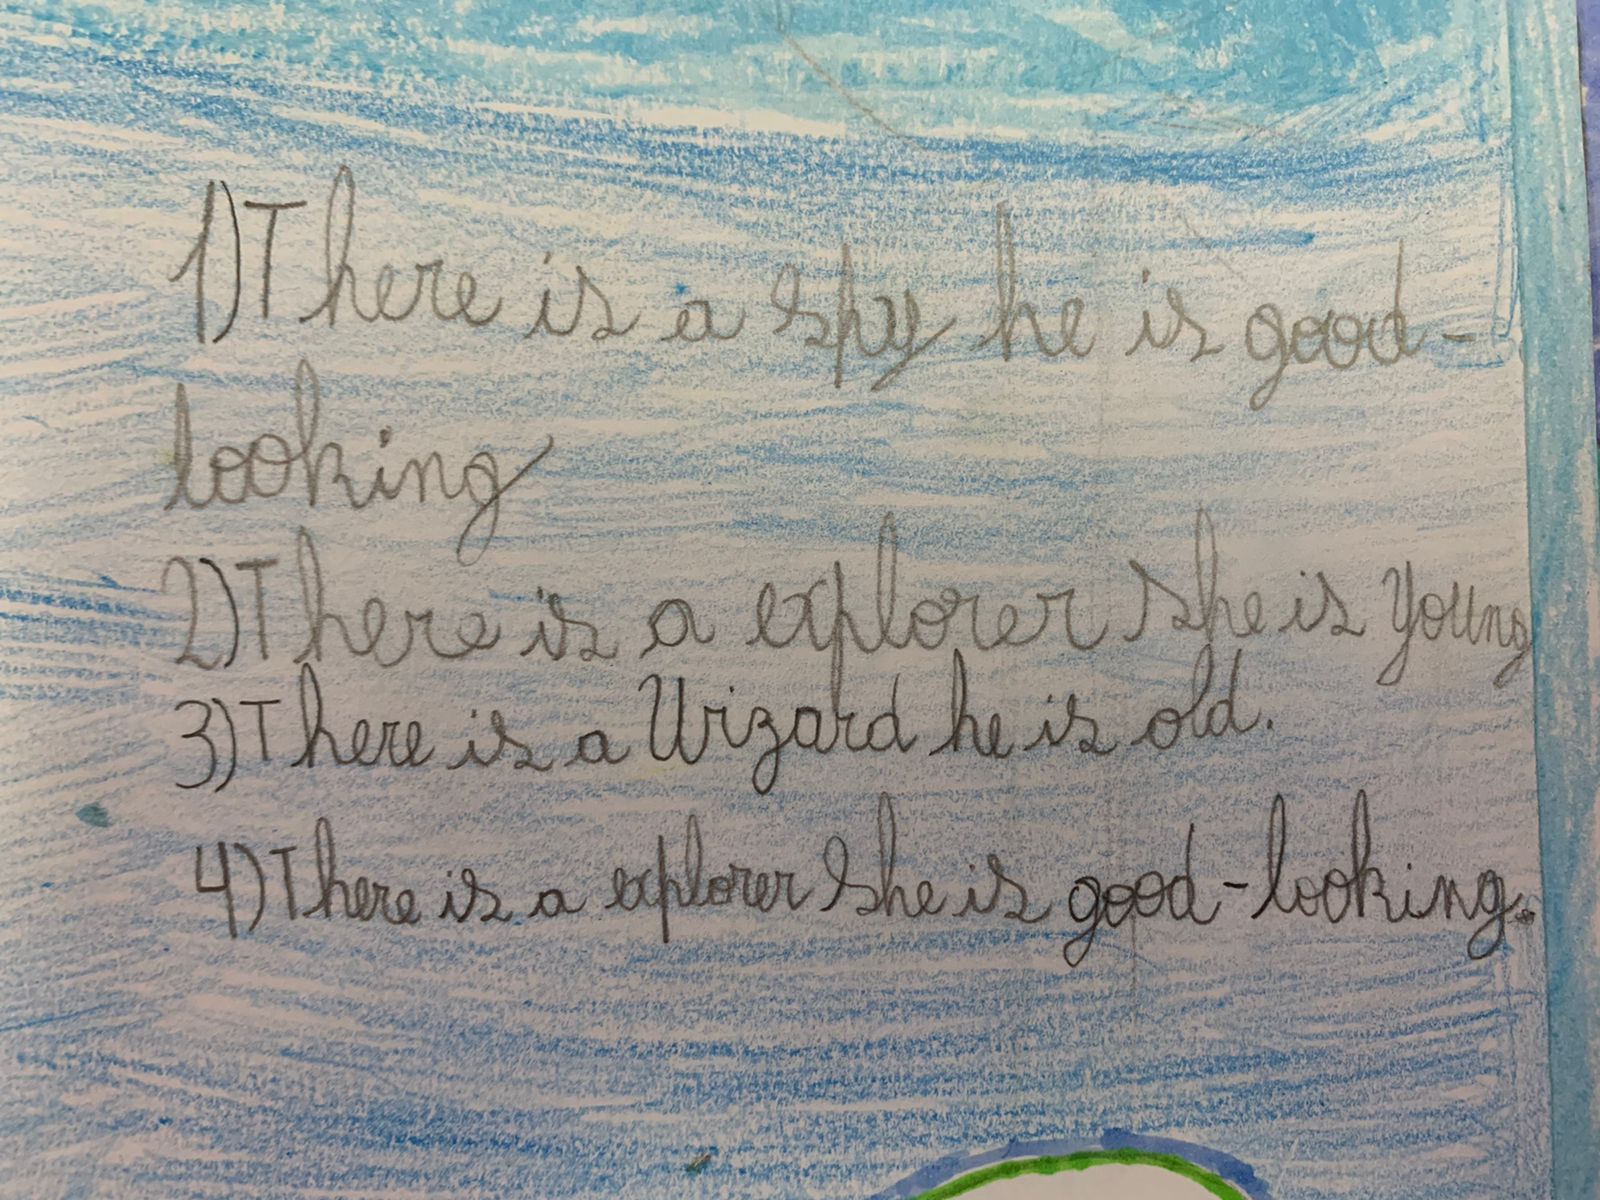 1) There is a spy he is good-
looking
2) There is a explorer she is young
3) There is a Wizard he is old.
4) There is a explorer she is good-looking.